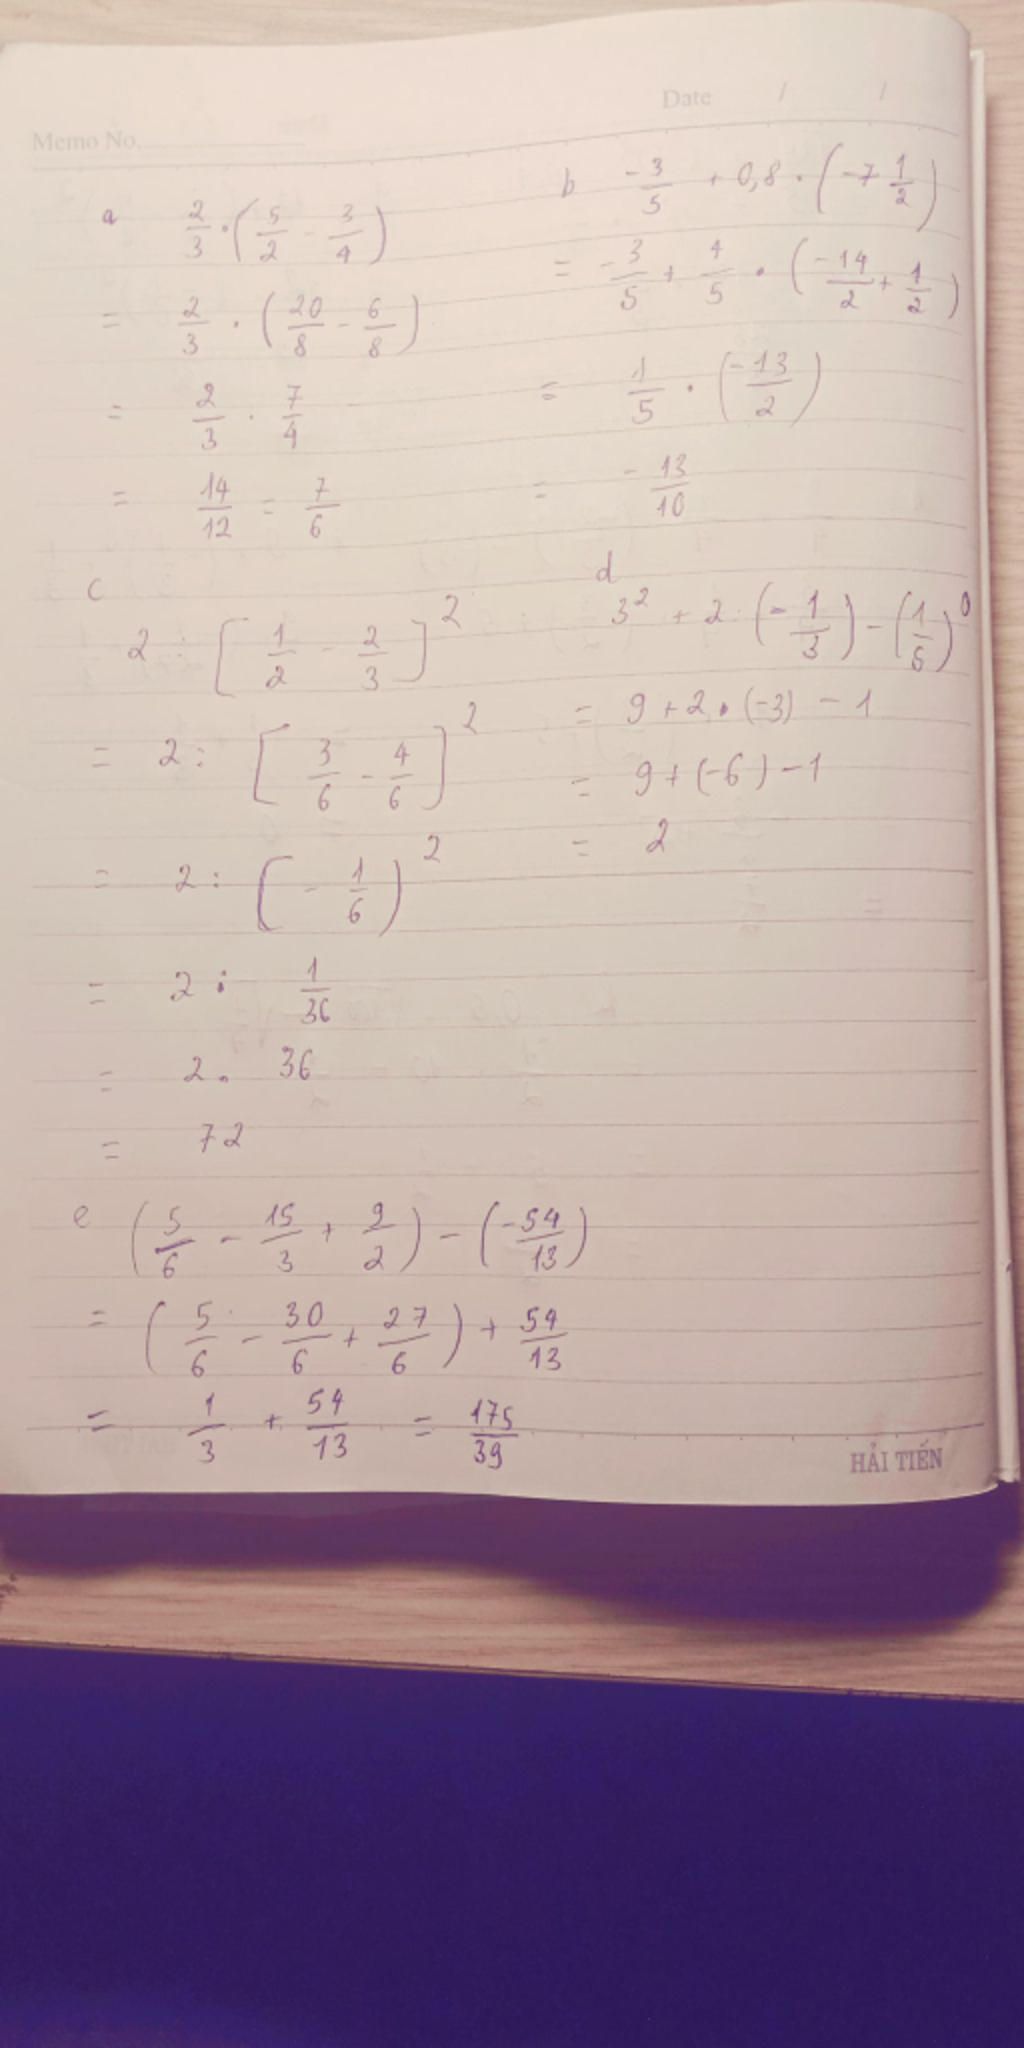 Memo No.
Date / /
a 2/3 . (5/2 - 3/4)
= 2/3 . (20/8 - 6/8)
= 2/3 . 7/4
= 14/12 = 7/6
b -3/5 + 0,8 . (-7 1/2)
= -3/5 + 4/5 . (-14/2 + 1/2)
= 1/5 . (-13/2)
= -13/10
c
2 : [1/2 - 2/3]²
= 2 : [3/6 - 4/6]²
= 2 : (-1/6)²
= 2 : 1/36
= 2 . 36
= 72
d
3² + 2 : (-1/3) - (1/6)⁰
= 9 + 2 . (-3) - 1
= 9 + (-6) - 1
= 2
e (5/6 - 15/3 + 9/2) - (-54/13)
= (5/6 - 30/6 + 27/6) + 54/13
= 1/3 + 54/13 = 175/39
HẢI TIẾN